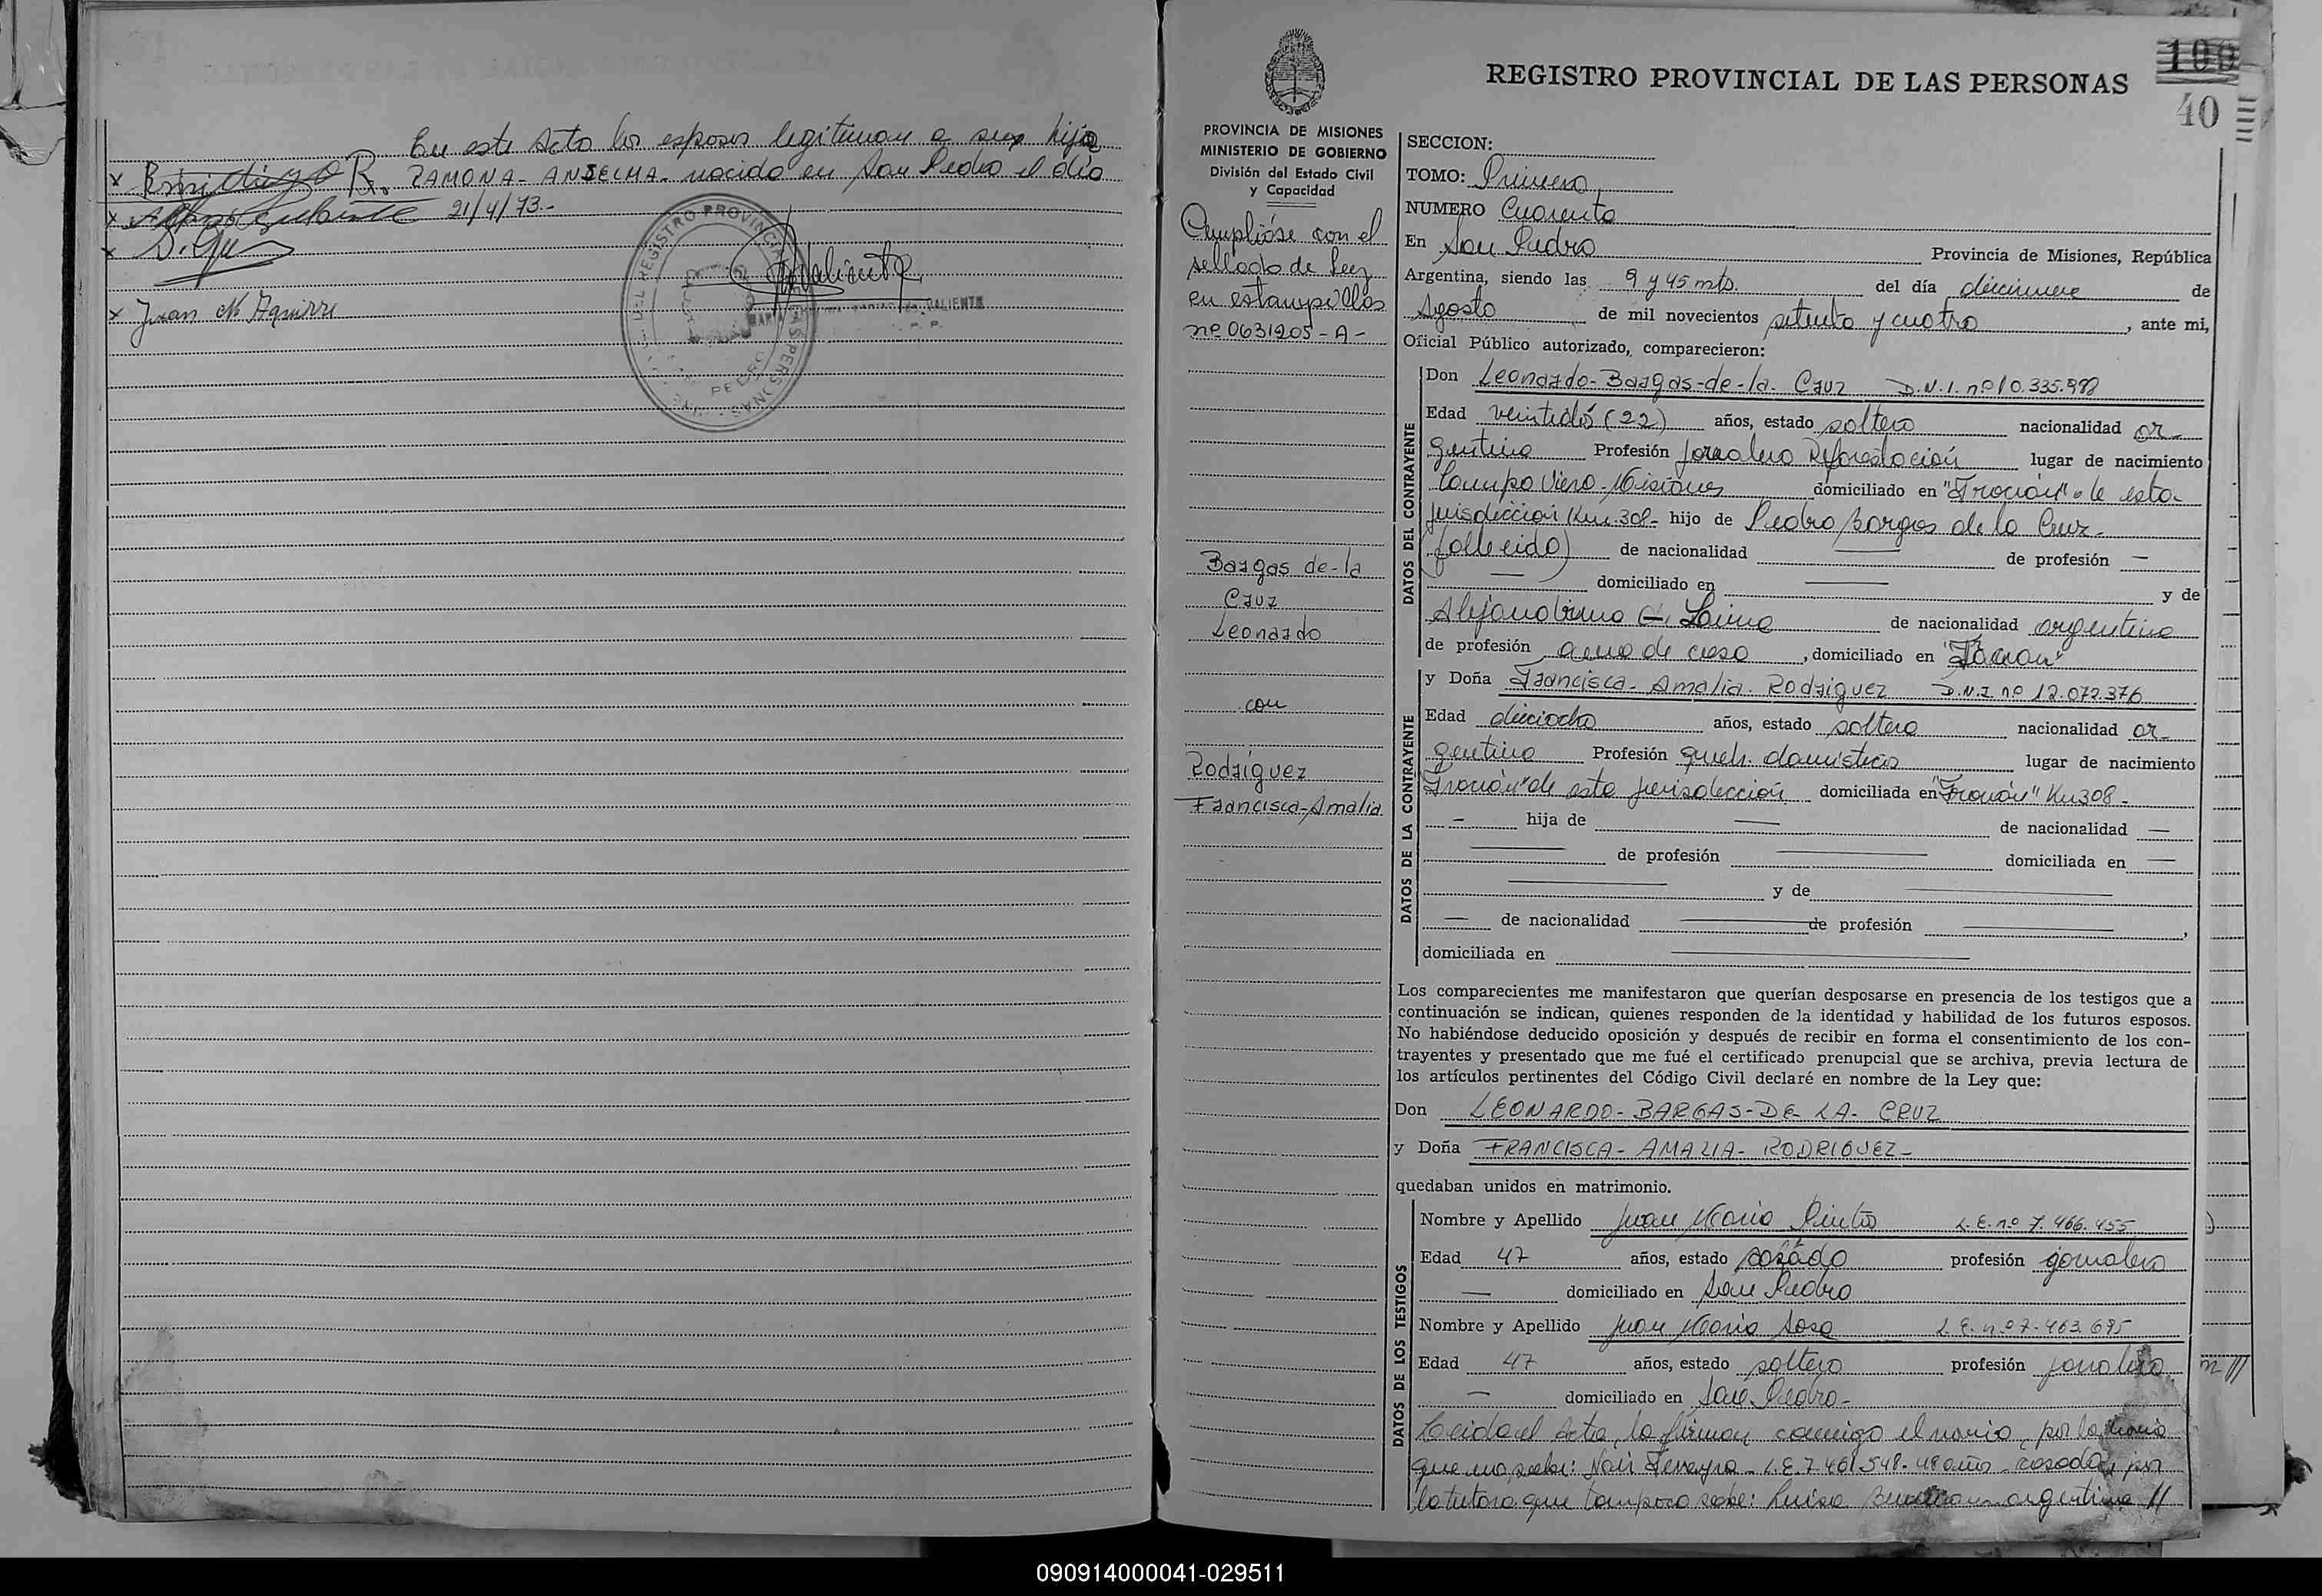 En este Acto los esposos legitiman a sus hija
RAMONA - ANSELMA - nacida en San Pedro el día
21/4/73.-
Juan M Aguirre
REGISTRO PROVINCIAL DE LAS PERSONAS
CALIENTE
PEDRO
100
40
REGISTRO PROVINCIAL DE LAS PERSONAS
PROVINCIA DE MISIONES
MINISTERIO DE GOBIERNO
División del Estado Civil
y Capacidad
Cumplióse con el
sellado de Ley
en estampillas
nº 0631205 - A -
Bargas de-la
Cruz
Leonardo
con
Rodríguez
Francisca-Amalia
SECCION:
TOMO: Primero
NUMERO Cuarenta
En San Pedro Provincia de Misiones, República
Argentina, siendo las 9 y 45 mts. del día diecinueve de
Agosto de mil novecientos setenta y cuatro, ante mi,
Oficial Público autorizado, comparecieron:
DATOS DEL CONTRAYENTE
Don Leonardo-Bargas-de-la-Cruz D.N.I. nº 10.335.982
Edad veintidós (22) años, estado soltero nacionalidad ar-
gentino Profesión Jornalero Reforestación lugar de nacimiento
Campo Viera - Misiones domiciliado en "Fracrán" de esta
jurisdicción Km. 308- hijo de Pedro Bargas de la Cruz-
(fallecido) de nacionalidad — de profesión —
— domiciliado en — y de
Alejandrina de Lima de nacionalidad argentina
de profesión ama de casa, domiciliado en "Fracrán"
DATOS DE LA CONTRAYENTE
y Doña Francisca - Amalia - Rodriguez D.N.I. nº 12.072.376
Edad dieciocho años, estado soltera nacionalidad ar-
gentina Profesión queh. domésticos lugar de nacimiento
"Fracrán" de esta jurisdicción domiciliada en "Fracrán" Km 308-
— hija de — de nacionalidad —
— de profesión — domiciliada en —
— y de —
— de nacionalidad — de profesión —,
domiciliada en —
Los comparecientes me manifestaron que querían desposarse en presencia de los testigos que a
continuación se indican, quienes responden de la identidad y habilidad de los futuros esposos.
No habiéndose deducido oposición y después de recibir en forma el consentimiento de los con-
trayentes y presentado que me fué el certificado prenupcial que se archiva, previa lectura de
los artículos pertinentes del Código Civil declaré en nombre de la Ley que:
Don LEONARDO- BARGAS- DE- LA- CRUZ
y Doña FRANCISCA- AMALIA- RODRIGUEZ-
quedaban unidos en matrimonio.
DATOS DE LOS TESTIGOS
Nombre y Apellido Juan María Pinto L.E. nº 7.466.455
Edad 47 años, estado casado profesión jornalero
— domiciliado en San Pedro
Nombre y Apellido Juan María Sosa L.E. nº 7.463.695
Edad 47 años, estado soltero profesión jornalero
— domiciliado en San Pedro-
Leída el Acta, la firman conmigo el novio, por la novia
que no sabe: Noir Ferreyra - L.E. 7.461.548- 48 años - casado, por
la tutora que tampoco sabe: Luisa argentina //
090914000041-029511